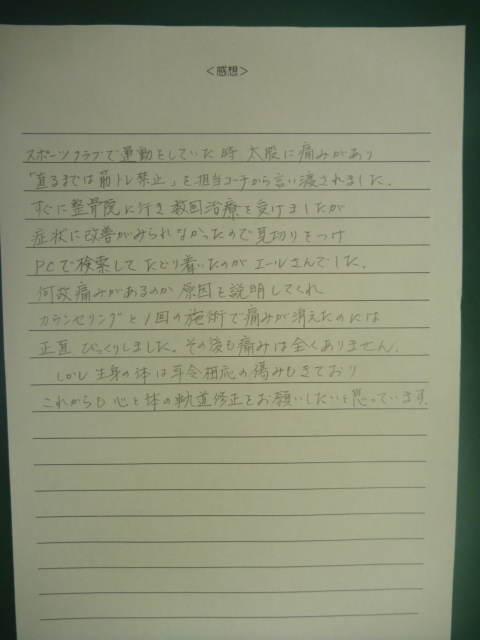 <感想>
スポーツクラブで運動をしていた時、太股に痛みがあり
「直るまでは筋トレ禁止」を担当コーチから言い渡されました。
すぐに整骨院に行き数回治療を受けましたが
症状に改善がみられなかったので見切りをつけ
PCで検索してたどり着いたのがエールさんでした。
何故痛みがあるのか原因を説明してくれ
カウンセリングと1回の施術で痛みが消えたのには
正直びっくりしました。その後も痛みは全くありません。
しかし生身の体は年令相応の傷みもきており
これからも心と体の軌道修正をお願いしたいと思っています。